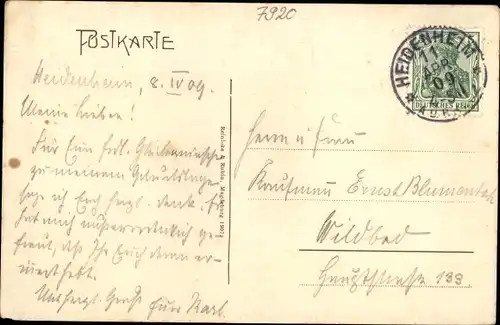 7920
POSTKARTE
Heidenheim, 8. IV 09.
Meine Lieben!
Für Eure frdl. Glückwünsche
zu meinem Geburtstage
sage ich Euch herzl. Dank. Es
hat mich außerordentlich ge-
freut, daß Ihr Euch daran er-
innert habt.
Mit herzl. Gruß Euer Karl.
Reinicke & Rubin, Magdeburg 1907
HEIDENHEIM
APR
09
DEUTSCHES REICH
Herrn u. Frau
Kaufmann Ernst Blumenthal
Wildbad
Hauptstrasse 133.